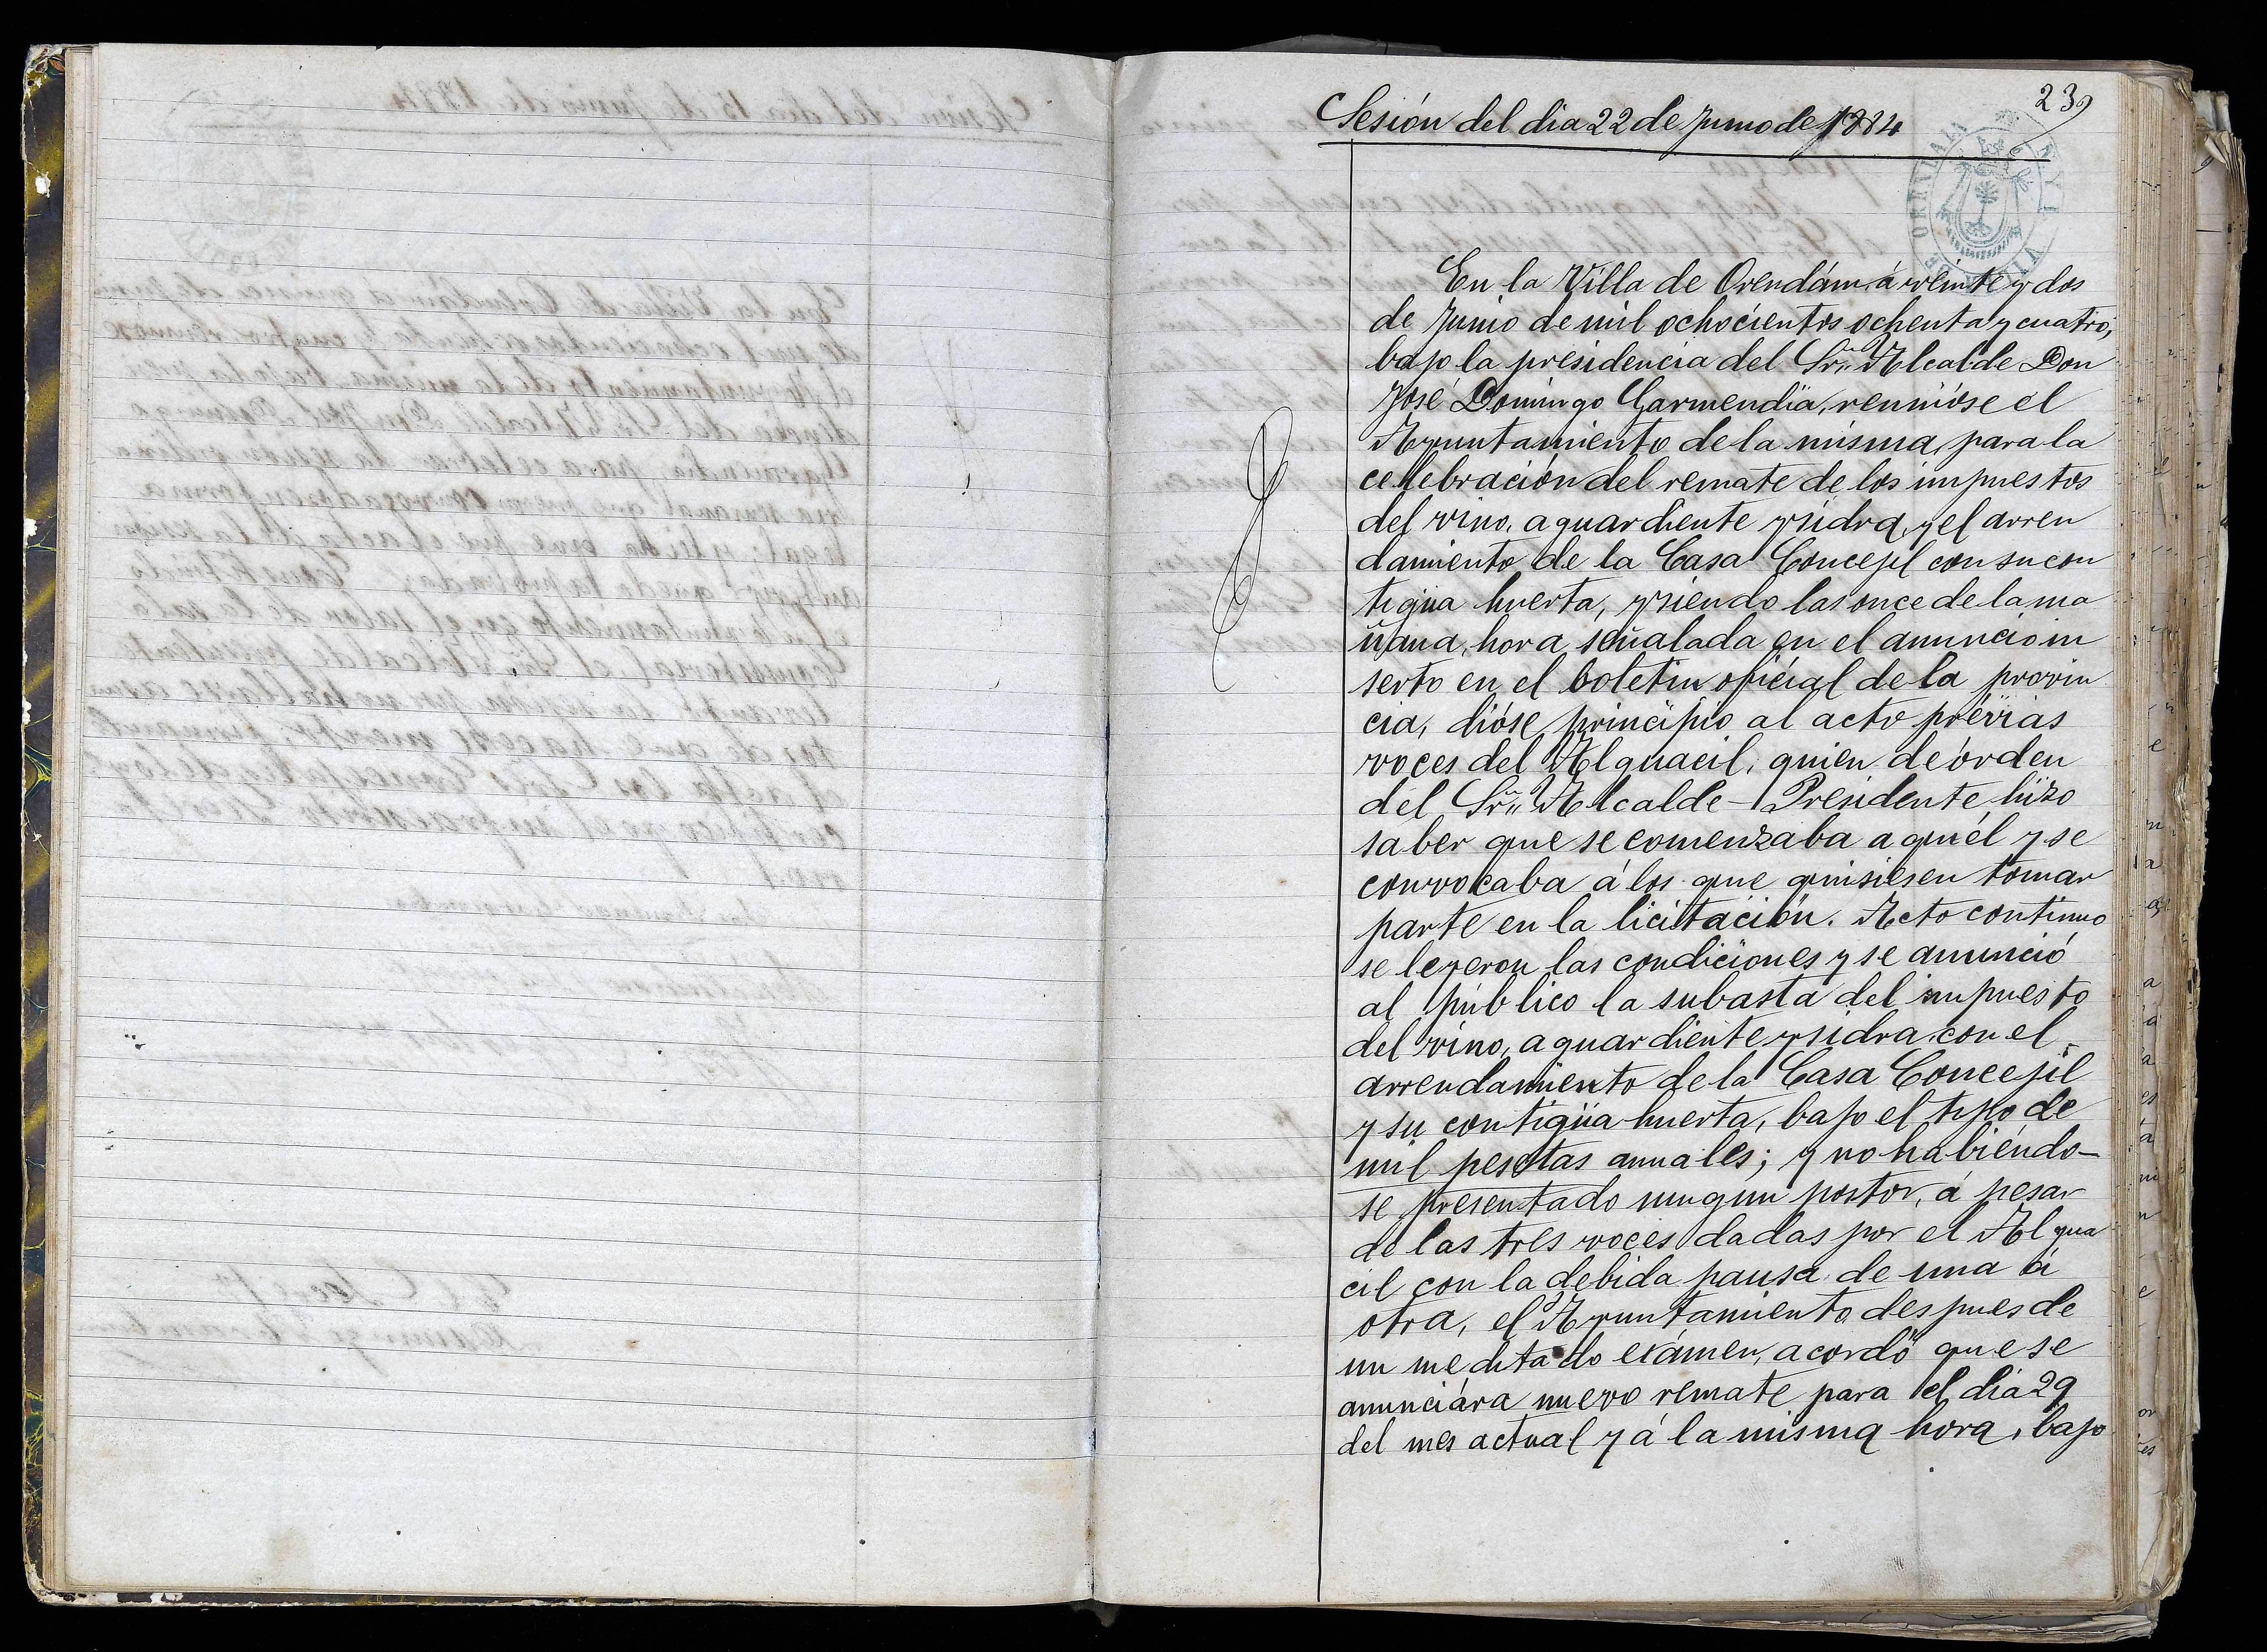 23
Sesión del dia 22 de Junio de 1884
En la Villa de Orendáin á veinte y dos
de Junio de mil ochocientos ochenta y cuatro,
bajo la presidencia del Sr. Alcalde Don
José Domingo Garmendia, reunióse el
Ayuntamiento de la misma, para la
cellebración del remate de los impuestos
del vino, aguardiente y sidra, y el arren
damiento de la Casa Concejil con su con
tigüa huerta, y siendo las once de la ma
ñana, hora señalada en el anuncio in
serto en el boletin oficial de la provin
cia, dióse principio al acto prévias
voces del Alguacil, quien de órden
del Sr. Alcalde - Presidente hizo
saber que se comenzaba aquél y se
convocaba á los que quisiesen tomar
parte en la licitación. Acto continuo
se leyeron las condiciones y se anunció
al público la subasta del impuesto
del vino, aguardiente y sidra con el
arrendamiento de la Casa Concejil
y su contigüa huerta, bajo el tipo de
mil pesetas anuales; y no habiéndo-
se presentado ningun postor, á pesar
de las tres voces dadas por el Algua
cil con la debida pausa de una á
otra, el Ayuntamiento despues de
un meditado exámen, acordó que se
anunciára nuevo remate para el dia 29
del mes actual y á la misma hora, bajo